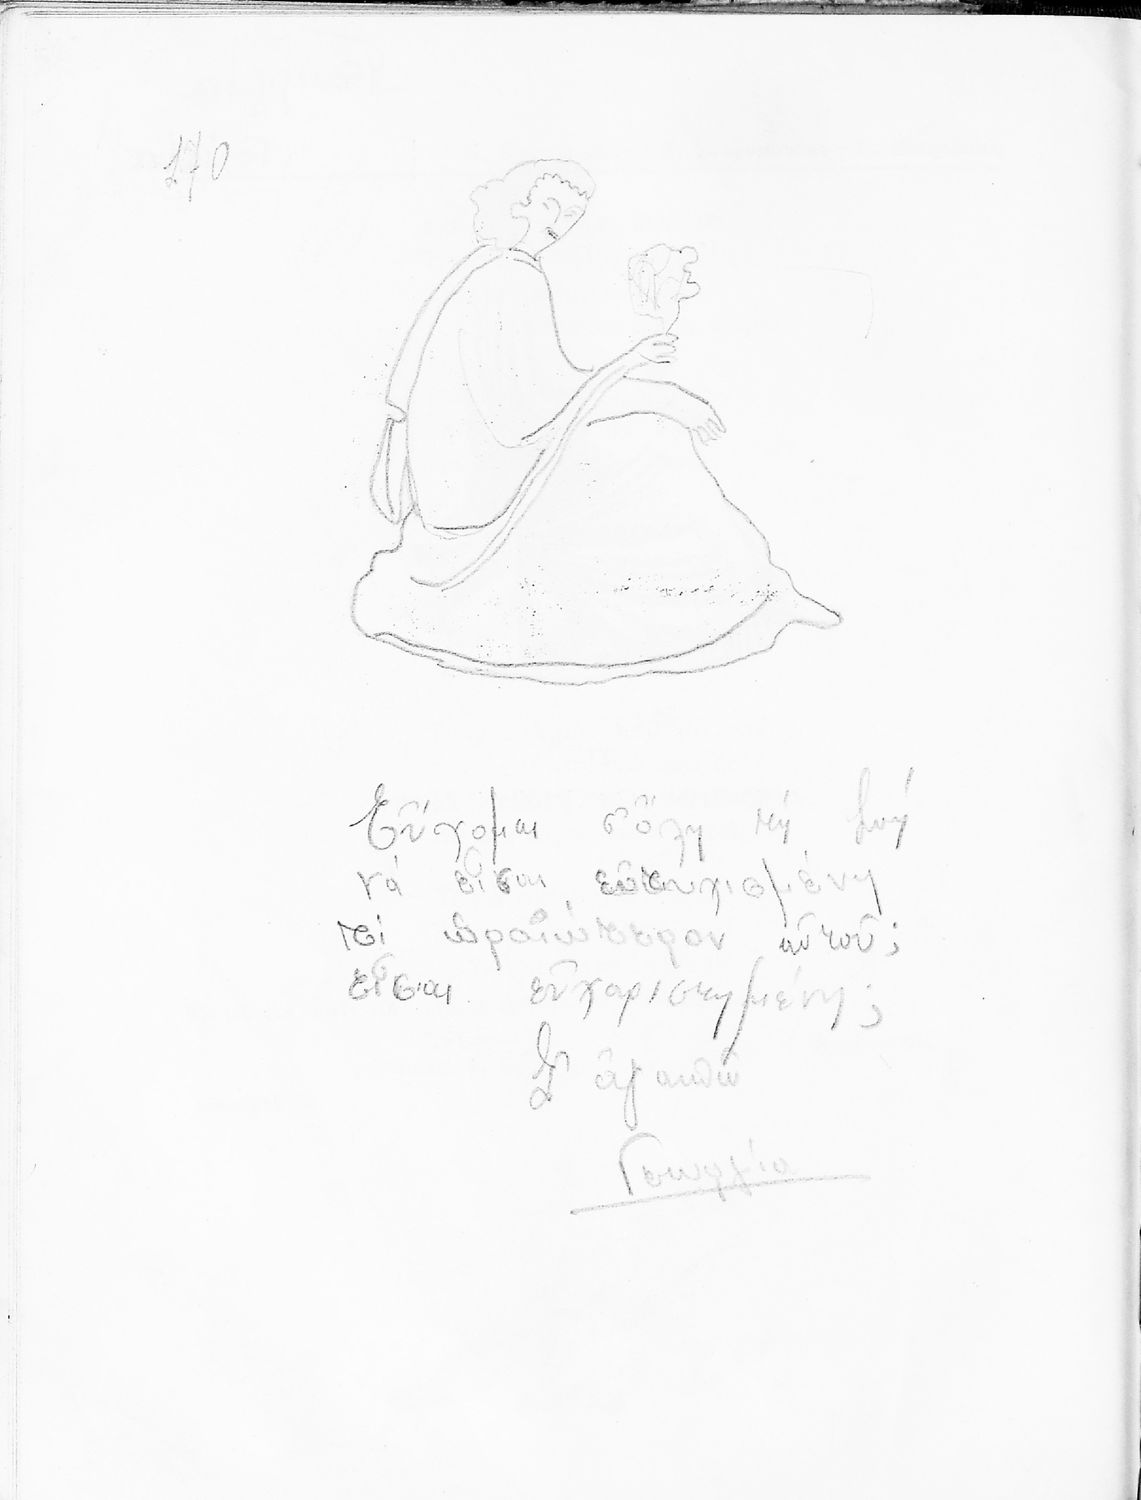 170
Εὔχομαι σ' ὅλη τή ζωή
νά εἶσαι εὐτυχισμένη
τί ὡραιώτερον αὐτοῦ;
εἶσαι εὐχαριστημένη;
Σ' ἀγαπῶ
Γεωργία